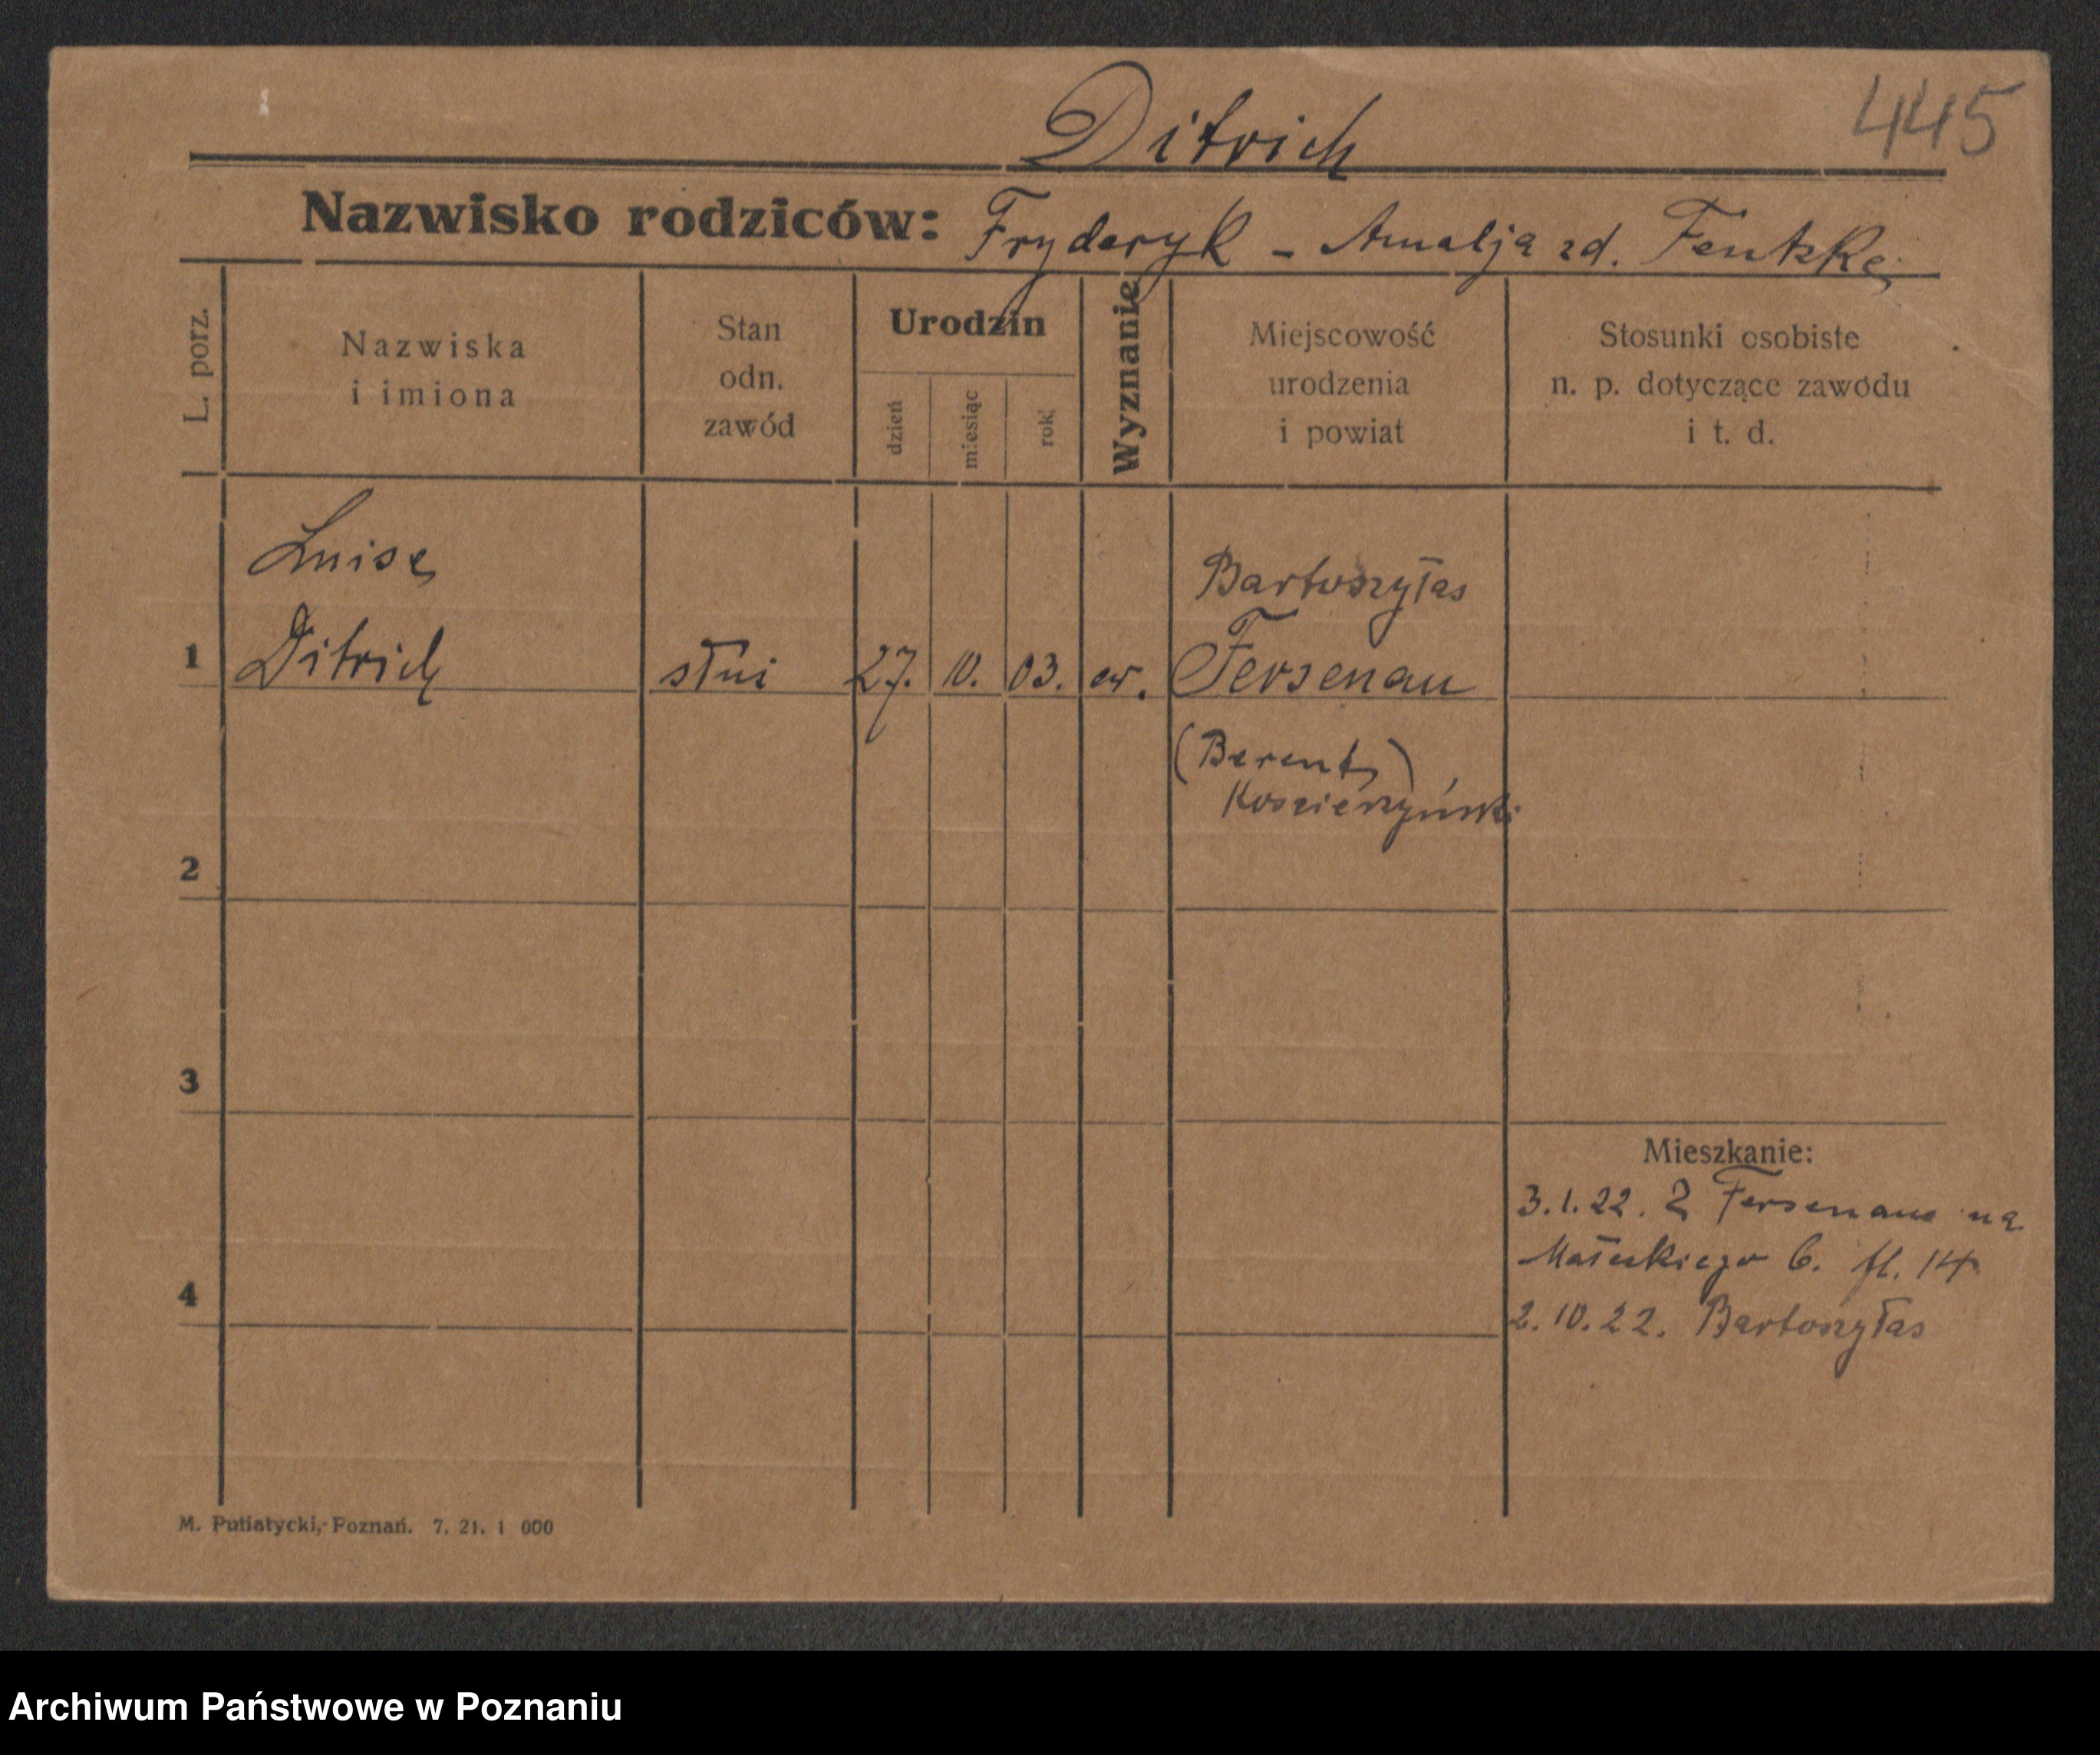 445
Ditrich
Nazwisko rodziców: Fryderyk - Amalja zd. Fentzke
L. porz.
Nazwiska
i imiona
Stan
odn.
zawód
Urodzin
dzień
miesiąc
rok
Wyznanie
Miejscowość
urodzenia
i powiat
Stosunki osobiste
n. p. dotyczące zawodu
i t. d.
Luise
Bartoszylas
1 Ditrich słui 27. 10. 03. ew. Fersenau
(Berent)
Koszierzyński
2
3
Mieszkanie:
3.1.22. Z Fersenau na
Małeckiego 6. fl. 14
4
2.10.22. Bartoszylas
M. Putiatycki, Poznań. 7. 21. 1 000
Archiwum Państwowe w Poznaniu